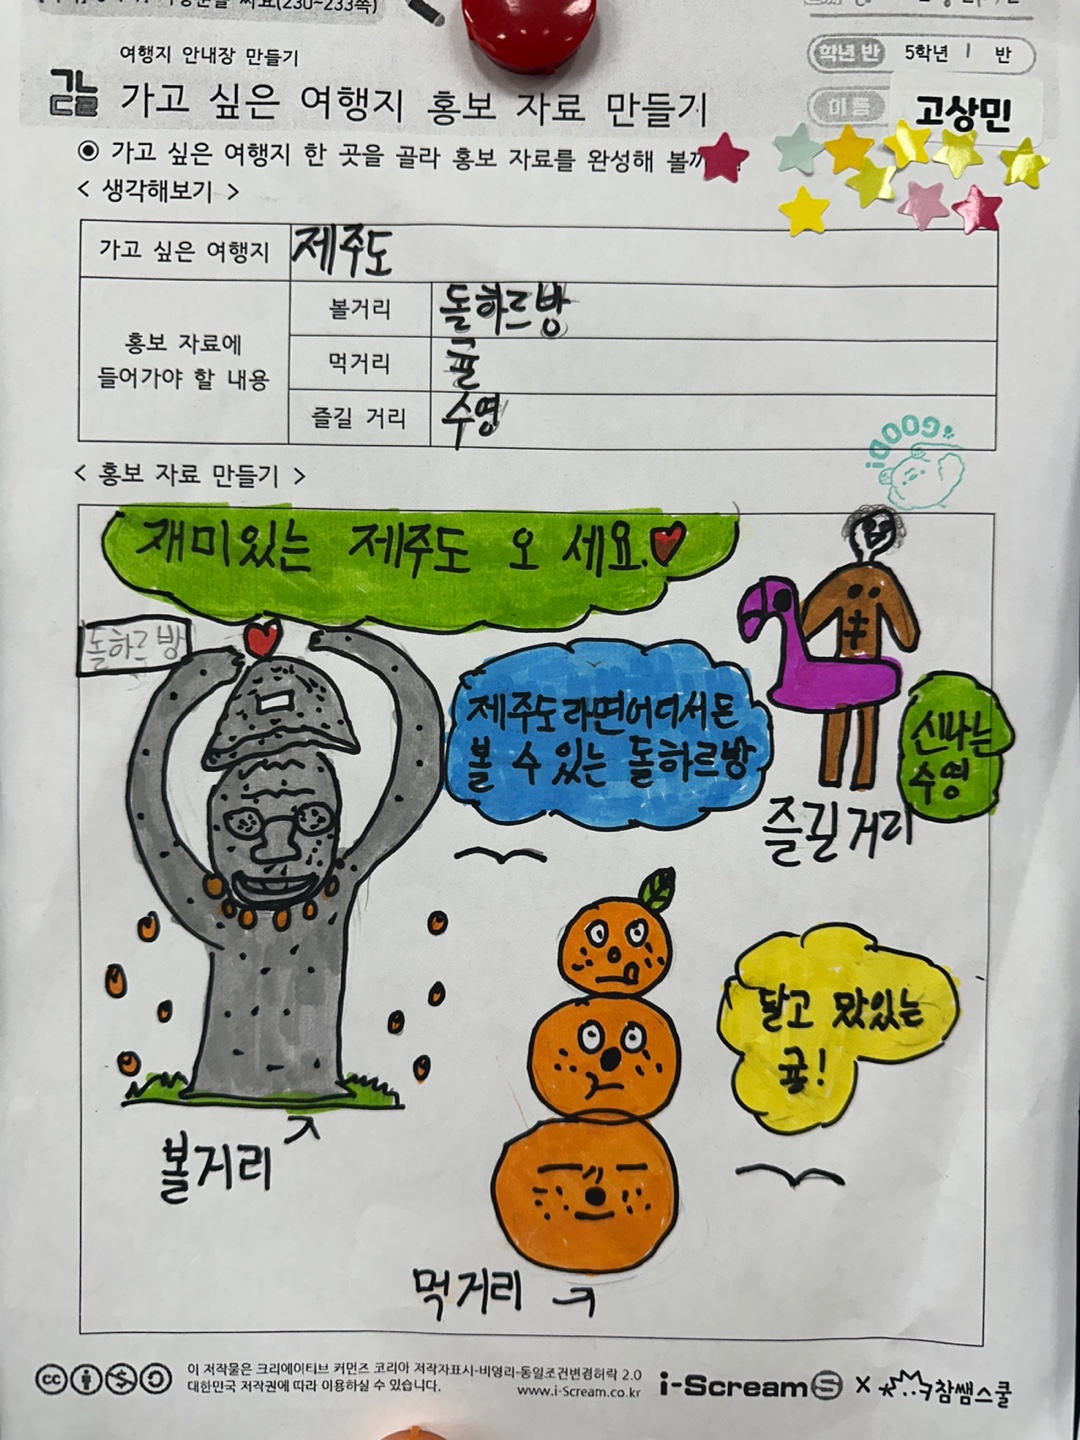 (230~233쪽)
여행지 안내장 만들기
가고 싶은 여행지 홍보 자료 만들기
학년 반 5학년 1 반
이름 고상민
◉ 가고 싶은 여행지 한 곳을 골라 홍보 자료를 완성해
< 생각해보기 >
가고 싶은 여행지 제주도
홍보 자료에
들어가야 할 내용
볼거리 돌하르방
먹거리 귤
즐길 거리 수영
GOOD!
< 홍보 자료 만들기 >
재미있는 제주도 오 세요.♥
돌하르방
제주도라면어디서든
볼 수 있는 돌하르방
신나는
수영
즐길거리
달고 맜있는
귤!
볼거리
먹거리
이 저작물은 크리에이티브 커먼즈 코리아 저작자표시-비영리-동일조건변경허락 2.0
대한민국 저작권에 따라 이용하실 수 있습니다.
www.i-Scream.co.kr
i-Scream S X 참쌤스쿨